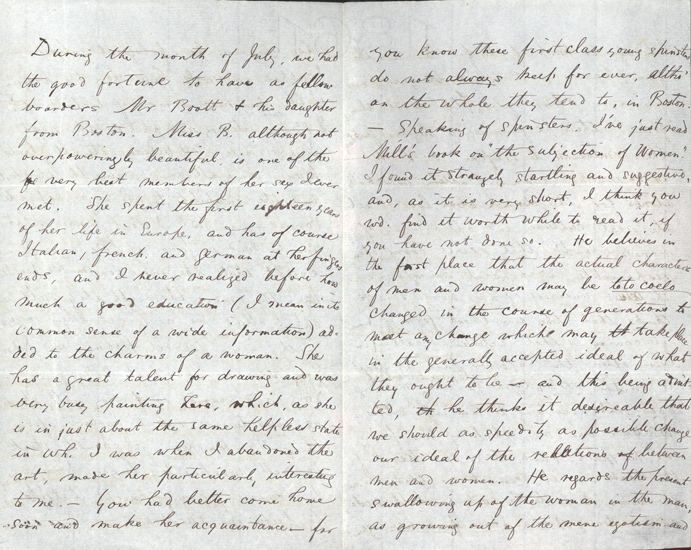 During the month of July, we had
the good fortune to have as fellow
boarders Mr Boott & his daughter
from Boston. Miss B. although not
overpoweringly beautiful, is one of the
very best members of her sex I ever
met. She spent the first eighteen years
of her life in Europe, and has of course
Italian, french, and german at her fingers
ends, and I never realized before how
much a good education (I mean in its
common sense of a wide information) ad-
ded to the charms of a woman. She
has a great talent for drawing and was
very busy painting here, which, as she
is in just about the same helpless state
in wh. I was when I abandoned the
art, made her particularly interesting
to me. — You had better come home
soon and make her acquaintance — for
you know these first class young spinsters
do not always keep for ever, altho'
on the whole they tend to, in Boston.
— Speaking of spinsters. I've just read
Mill's book on "the Subjection of Women."
I found it strangely startling and suggestive,
and, as it is very short, I think you
wd. find it worth while to read it, if
you have not done so. He believes in
the first place that the actual characters
of men and women may be toto coelo
changed in the course of generations to
meet any change which may take place
in the generally accepted ideal of what
they ought to be — and this being admit
ted, he thinks it desireable that
we should as speedily as possible change
our ideal of the relations of between
men and women. He regards the present
swallowing up of the woman in the man,
as growing out of the mere egotism and